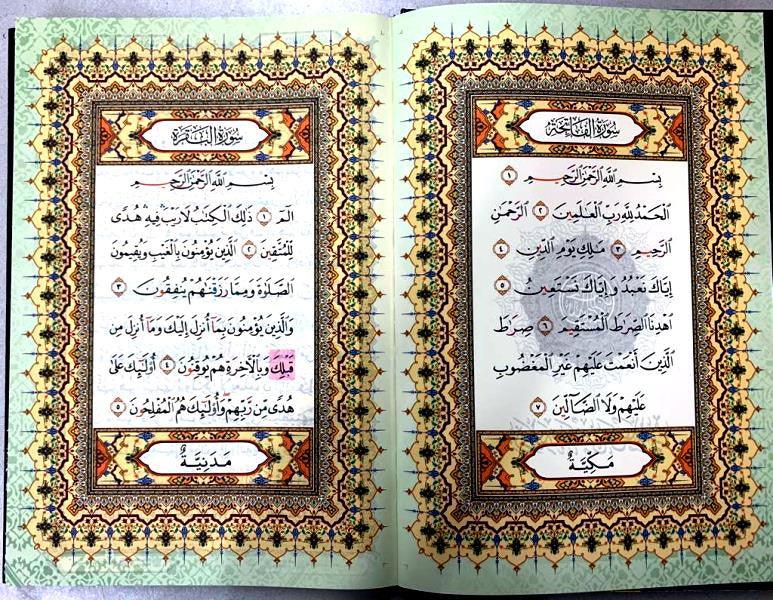 سُورَةُ الْفَاتِحَةِ
بِسْمِ اللَّهِ الرَّحْمَٰنِ الرَّحِيمِ ١
الْحَمْدُ لِلَّهِ رَبِّ الْعَٰلَمِينَ ٢ الرَّحْمَٰنِ
الرَّحِيمِ ٣ مَٰلِكِ يَوْمِ الدِّينِ ٤
إِيَّاكَ نَعْبُدُ وَإِيَّاكَ نَسْتَعِينُ ٥
اهْدِنَا الصِّرَٰطَ الْمُسْتَقِيمَ ٦ صِرَٰطَ
الَّذِينَ أَنْعَمْتَ عَلَيْهِمْ غَيْرِ الْمَغْضُوبِ
عَلَيْهِمْ وَلَا الضَّآلِّينَ ٧
مَكِّيَّةٌ
سُورَةُ الْبَقَرَةِ
بِسْمِ اللَّهِ الرَّحْمَٰنِ الرَّحِيمِ
الٓمٓ ١ ذَٰلِكَ الْكِتَٰبُ لَا رَيْبَ فِيهِ هُدًى
لِّلْمُتَّقِينَ ٢ الَّذِينَ يُؤْمِنُونَ بِالْغَيْبِ وَيُقِيمُونَ
الصَّلَوٰةَ وَمِمَّا رَزَقْنَٰهُمْ يُنْفِقُونَ ٣
وَالَّذِينَ يُؤْمِنُونَ بِمَآ أُنْزِلَ إِلَيْكَ وَمَآ أُنْزِلَ مِنْ
قَبْلِكَ وَبِالْآخِرَةِ هُمْ يُوقِنُونَ ٤ أُولَٰٓئِكَ عَلَىٰ
هُدًى مِّنْ رَّبِّهِمْ وَأُولَٰٓئِكَ هُمُ الْمُفْلِحُونَ ٥
مَدَنِيَّةٌ